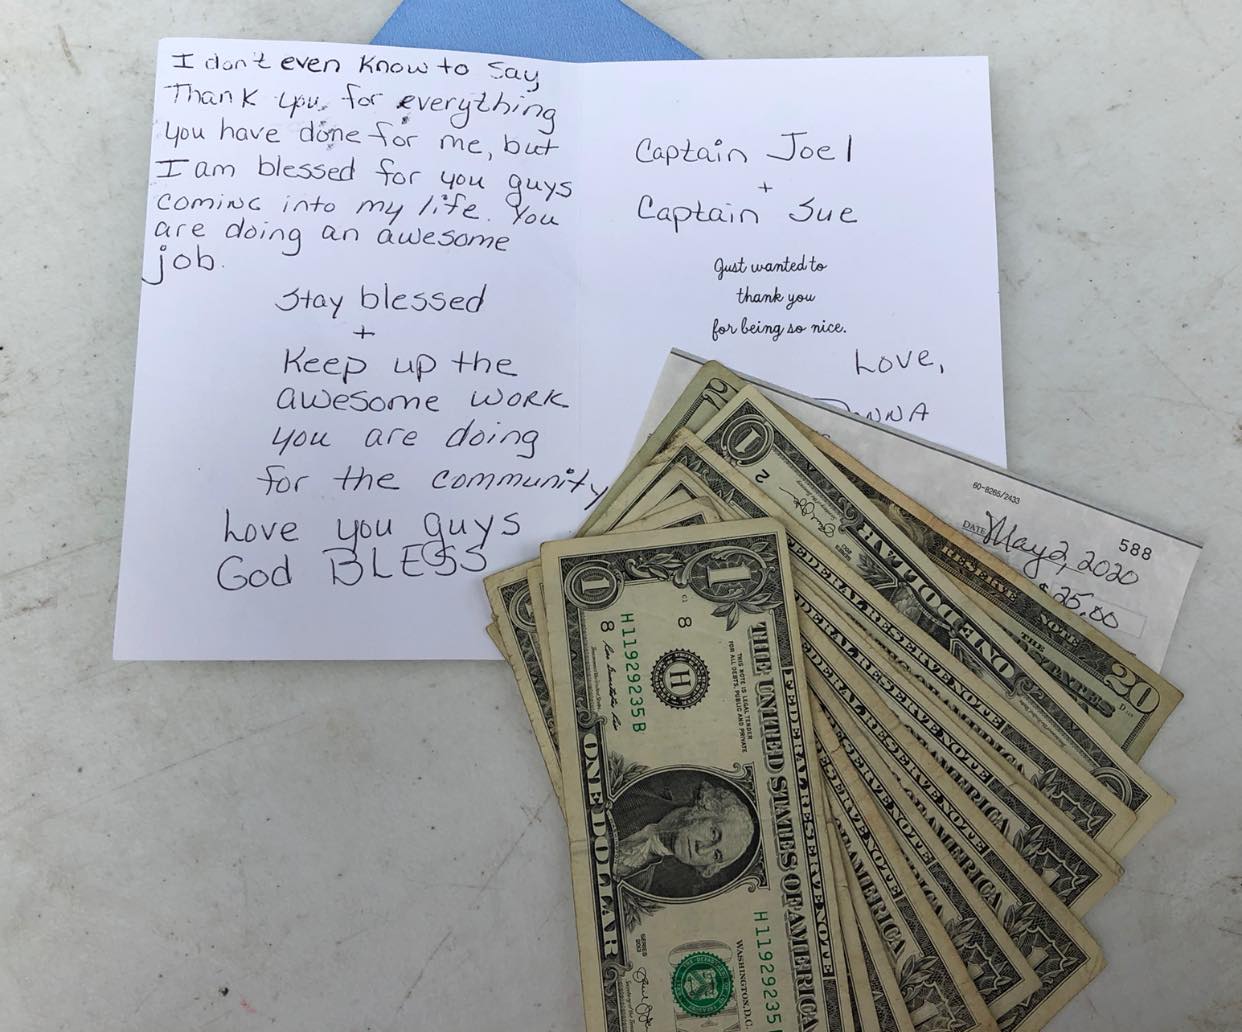 I don't even know to say
Thank you for everything
you have done for me, but
I am blessed for you guys
coming into my life. You
are doing an awesome
job.
Stay blessed
+
Keep up the
awesome work
you are doing
for the community
Love you guys
God BLESS
Captain Joel
+
Captain Sue
Just wanted to
thank you
for being so nice.
Love,
60-8265/2433
588
DATE May 2, 2020
$ 25.00
20
RESERVE NOTE
THE
STATES
1
2
ONE DOLLAR
FEDERAL RESERVE NOTE
AMERICA
FEDERAL RESERVE NOTE
AMERICA
FEDERAL RESERVE NOTE
THE UNITED STATES OF AMERICA
THIS NOTE IS LEGAL TENDER
FOR ALL DEBTS, PUBLIC AND PRIVATE
H
8
8
H11929235B
ONE DOLLAR
H11929235
WASHINGTON, D.C.
SERIES
2013
1
1